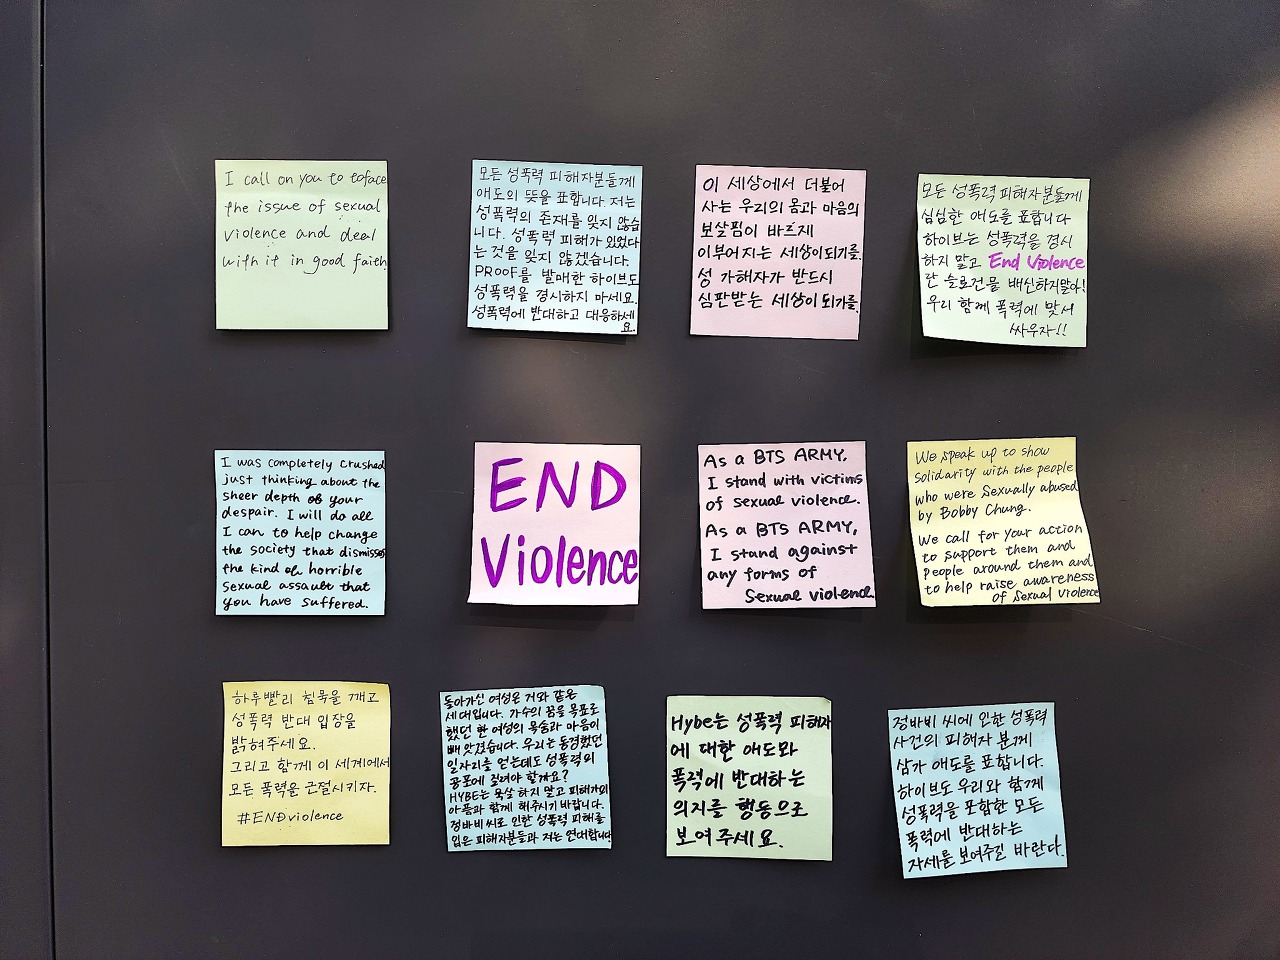 I call on you to toface
the issue of sexual
violence and deal
with it in good faith
모든 성폭력 피해자분들께
애도의 뜻을 표합니다. 저는
성폭력의 존재를 잊지 않습
니다. 성폭력 피해가 있었다
는 것을 잊지 않겠습니다.
PROOF를 발매한 하이브도
성폭력을 경시하지 마세요.
성폭력에 반대하고 대응하세
요.
이 세상에서 더불어
사는 우리의 몸과 마음의
보살핌이 바르게
이루어지는 세상이되기를.
성 가해자가 반드시
심판받는 세상이 되기를.
모든 성폭력 피해자분들께
심심한 애도를 표합니다
하이브는 성폭력을 경시
하지 말고 End Violence
란 슬로건을 배신하지말아!
우리 함께 폭력에 맞서
싸우자!!
I was completely crushed
just thinking about the
sheer depth of your
despair. I will do all
I can to help change
the society that dismisses
the kind of horrible
sexual assault that
you have suffered.
END
Violence
As a BTS ARMY,
I stand with victims
of sexual violence.
As a BTS ARMY,
I stand against
any forms of
Sexual violence
We speak up to show
solidarity with the people
who were sexually abused
by Bobby Chung.
We call for your action
to support them and
people around them and
to help raise awareness
of sexual violence
하루빨리 침묵을 깨고
성폭력 반대 입장을
밝혀주세요.
그리고 함께 이 세계에서
모든 폭력을 근절시키자.
#ENDviolence
돌아가신 여성은 저와 같은
세대입니다. 가수의 꿈을 목표로
했던 한 여성의 목숨과 마음이
빼앗겼습니다. 우리는 동경했던
일자리를 얻는데도 성폭력의
공포에 질려야 할까요?
HYBE는 묵살 하지 말고 피해자의
아픔과 함께 해주시기 바랍니다.
정바비씨로 인한 성폭력 피해를
입은 피해자분들과 저는 연대합니다
Hybe는 성폭력 피해자
에 대한 애도와
폭력에 반대하는
의지를 행동으로
보여주세요.
정바비 씨에 인한 성폭력
사건의 피해자 분께
삼가 애도를 표합니다.
하이브도 우리와 함께
성폭력을 포함한 모든
폭력에 반대하는
자세를 보여주길 바란다.